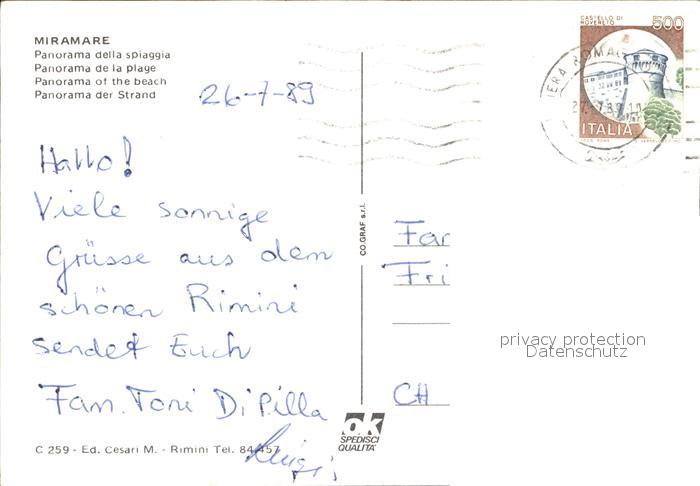 MIRAMARE
Panorama della spiaggia
Panorama de la plage
Panorama of the beach
Panorama der Strand
26-7-89
Hallo!
Viele sonnige
Grüsse aus dem
schönen Rimini
sendet Euch
Fam. Toni Di Pilla
Luigi
C 259 - Ed. Cesari M. - Rimini Tel. 84457
CO.GRAF s.r.l.
ok
SPEDISCI
QUALITA'
CASTELLO DI
ROVERETO
500
ITALIA
Fam
Fri
CH
privacy protection
Datenschutz